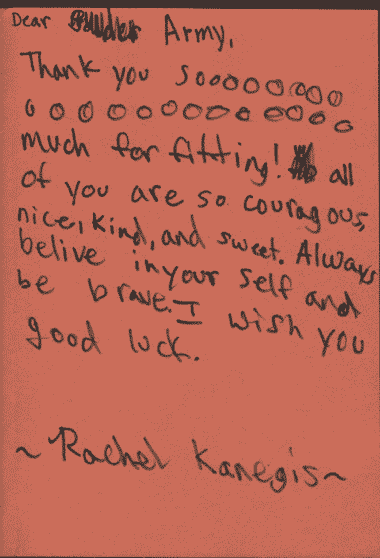 Dear Army,
Thank you sooooooooo
ooooooooooooo
much for fitting! all
of you are so couragous,
nice, kind, and sweet. Always
belive in your self and
be brave. I wish you
good luck.
~Rachel Kanegis~